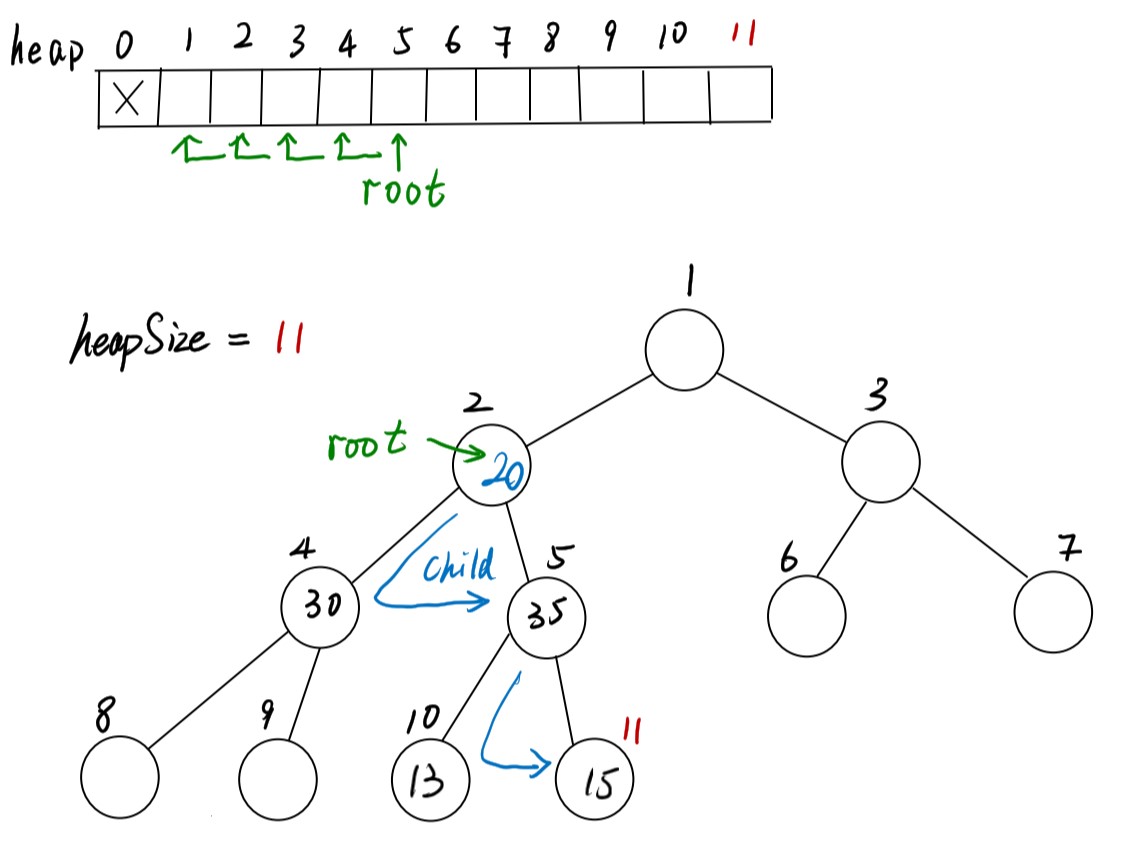 heap 0 1 2 3 4 5 6 7 8 9 10 11
X
root
1
heapSize = 11
2 3
root 20
4 child 5 6 7
30 35
8 9 10 11
13 15